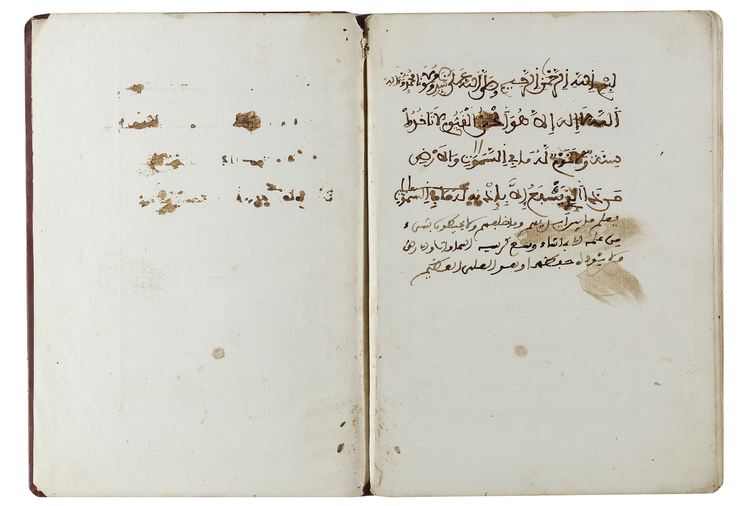 بسم الله الرحمن الرحيم وصلى الله على سيدنا ومولانا محمد
الله لا إله إلا هو الحي القيوم لا تاخذه
سنة ولا نوم له ما في السموت والارض
من ذا الذي يشبع إلا بإذنه له ما في السموت
يعلم ما بين ايديهم وما خلفهم ولا يحيطون بشيء
من علمه الا بما شاء وسع كرسيه السماوات والارض
ولا يئوده حفظهما وهو العلي العظيم